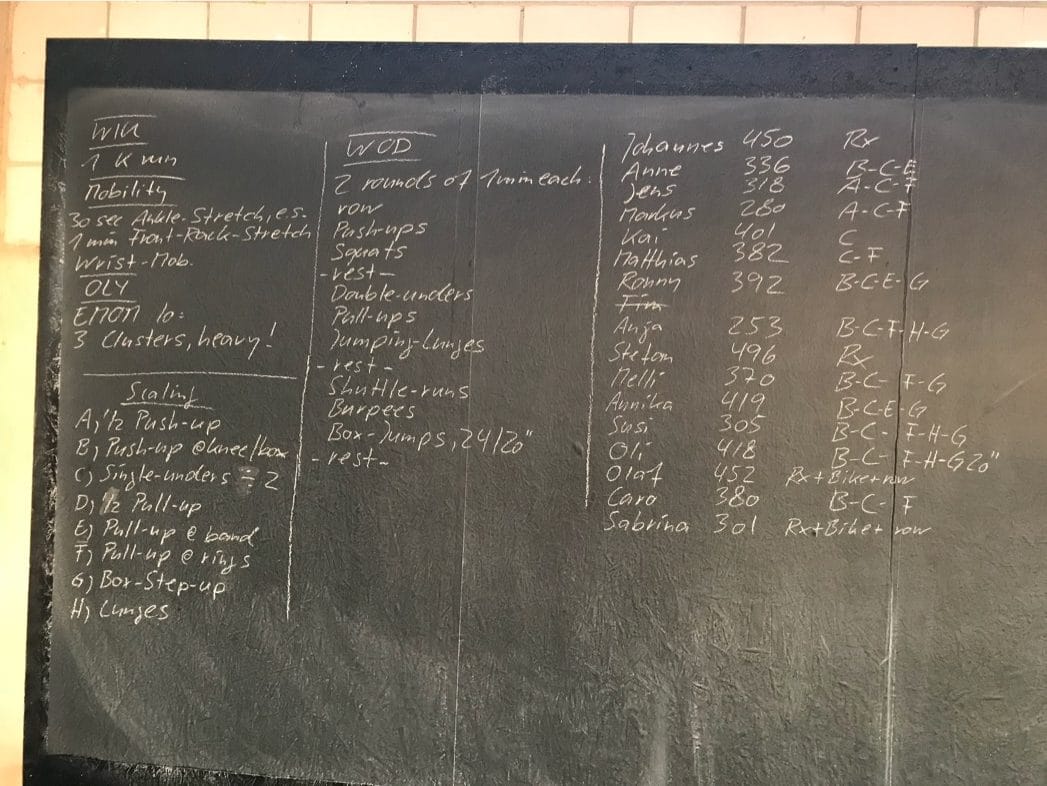 WU
1 K run
Mobility
30 sec Ankle-Stretch, e.s.
1 min Front-Rack-Stretch
Wrist-Mob.
OLY
EMOM 10:
3 Clusters, heavy!
Scaling
A) 1/2 Push-up
B) Push-up @knee/box
C) Single-unders = 2
D) 1/2 Pull-up
E) Pull-up @ band
F) Pull-up @ rings
G) Box-Step-up
H) Lunges
WOD
2 rounds of 1 min each:
row
Push-ups
Squats
-rest-
Double-unders
Pull-ups
Jumping-Lunges
-rest-
Shuttle-runs
Burpees
Box-Jumps, 24/20"
-rest-
Johannes 450 Rx
Anne 336 B-C-E
Jens 318 A-C-F
Markus 280 A-C-F
Kai 401 C
Matthias 382 C-F
Ronny 392 B-C-E-G
Tim
Anja 253 B-C-F-H-G
Stefan 496 Rx
Melli 370 B-C-F-G
Annika 419 B-C-E-G
Susi 305 B-C-F-H-G
Oli 418 B-C-F-H-G 20"
Olaf 452 Rx+Bike+row
Caro 380 B-C-F
Sabrina 301 Rx+Bike+row